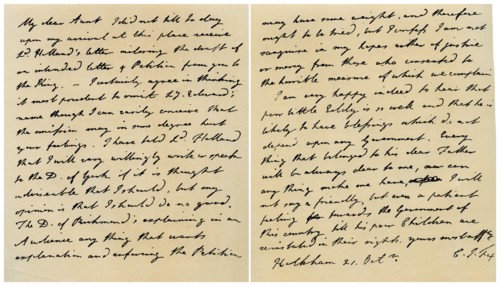 My dear Aunt I did not till to day
upon my arrival at this place receive
Ld. Holland's letter inclosing the draft of
an intended letter & Petition from you to
the King. — I certainly agree in thinking
it most prudent to omit Ld. Edward's
name though I can easily conceive that
the omission may in some degree hurt
your feelings. I have told Ld. Holland
that I will very willingly write or speak
to the D. of York if it is thought
adviseable that I should, but my
opinion is that I should do no good.
The D. of Richmond's explaining in an
Audience any thing that wants
explanation and enforcing the Petition
may have some weight, and therefore
ought to be tried, but I confess I am not
sanguine in my hopes either of justice
or mercy from those who consented to
the horrible measure of which we complain
I am very happy indeed to hear that
poor little Eddy is so well and that he is
likely to have blessings which do not
depend upon any Government. Every
thing that belonged to his dear Father
will be always dear to me, nor can
any thing make me have, I will
not say a friendly, but even a patient
feeling towards the Government of
this country till his poor Children are
reinstated in their rights. yours most affly
Holkham 21. Octr. C. J. Fox